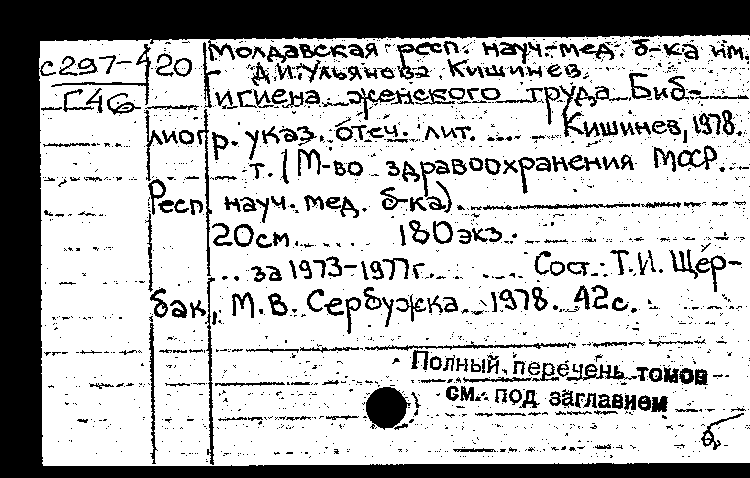 с297-420 Молдавская респ. науч.-мед. б-ка им.
Г46 Д.И. Ульянова. Кишинев.
Гигиена женского труда Биб-
лиогр. указ. отеч. лит. .... Кишинев, 1978.
т. (М-во здравоохранения МССР.
Респ. науч. мед. б-ка).
20см. ..... 180экз.
... за 1973-1977г. .... Сост.: Т.И. Щер-
бак, М.В. Сербужка. 1978. 42с.
Полный перечень томов
см. под заглавием